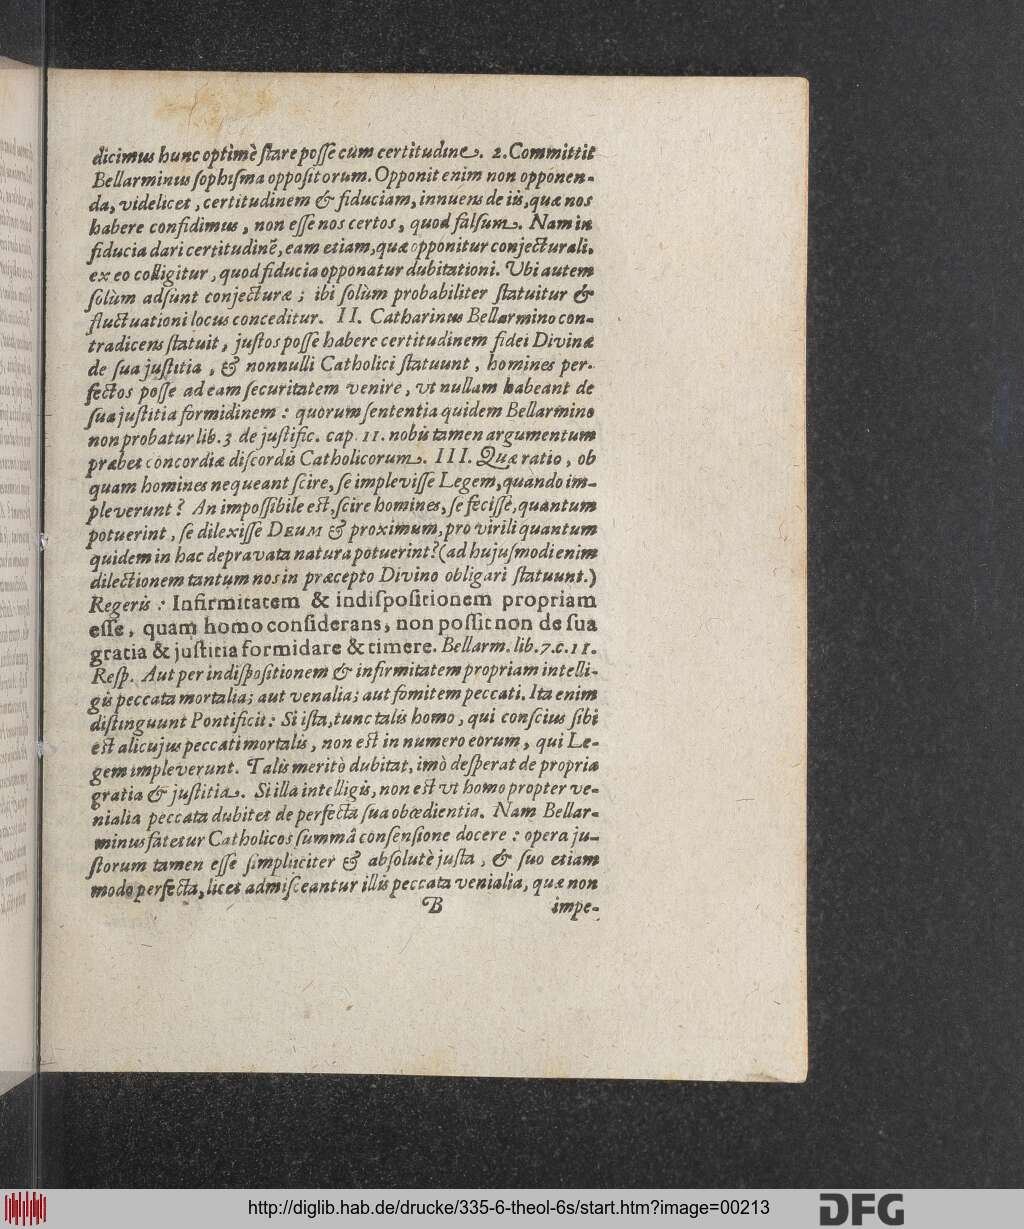 dicimus hunc optimè ſtare poſſe cùm certitudine. 2. Committit
Bellarminus ſophiſma oppoſitorum. Opponit enim non opponen-
da, videlicet, certitudinem & fiduciam, innuens de iis, quæ nos
habere confidimus, non eſſe nos certos, quod falſum. Nam in
fiducia dari certitudinē, eam etiam, quæ opponitur conjecturali,
ex eo colligitur, quod fiducia opponatur dubitationi. Ubi autem
ſolùm adſunt conjecturæ; ibi ſolùm probabiliter ſtatuitur &
fluctuationi locus conceditur. II. Catharinus Bellarmino con-
tradicens ſtatuit, juſtos poſſe habere certitudinem fidei Divinæ
de ſua juſtitia, & nonnulli Catholici ſtatuunt, homines per-
fectos poſſe ad eam ſecuritatem venire, ut nullam habeant de
ſua juſtitia formidinem: quorum ſententia quidem Bellarmino
non probatur lib. 3 de juſtific. cap. 11. nobis tamen argumentum
præbet concordiæ diſcordis Catholicorum. III. Quæ ratio, ob
quam homines nequeant ſcire, ſe impleviſſe Legem, quando im-
pleverunt? An impoſſibile eſt, ſcire homines, ſe feciſſe, quantum
potuerint, ſe dilexiſſe DEUM & proximum, pro virili quantum
quidem in hac depravata natura potuerint? (ad hujuſmodi enim
dilectionem tantum nos in præcepto Divino obligari ſtatuunt.)
Regeris: Infirmitatem & indiſpoſitionem propriam
eſſe, quam homo conſiderans, non poſſit non de ſua
gratia & juſtitia formidare & timere. Bellarm. lib. 7. c. 11.
Reſp. Aut per indiſpoſitionem & infirmitatem propriam intelli-
gis peccata mortalia; aut venalia; aut fomitem peccati. Ita enim
diſtinguunt Pontificii: Si iſta, tunc talis homo, qui conſcius ſibi
eſt alicujus peccati mortalis, non eſt in numero eorum, qui Le-
gem impleverunt. Talis meritò dubitat, imò deſperat de propria
gratia & juſtitia. Si illa intelligis, non eſt ut homo propter ve-
nialia peccata dubitet de perfecta ſua obœdientia. Nam Bellar-
minus fatetur Catholicos ſummâ conſenſione docere: opera ju-
ſtorum tamen eſſe ſimpliciter & abſolutè juſta, & ſuo etiam
modo perfecta, licet admiſceantur illis peccata venialia, quæ non
B impe-
http://diglib.hab.de/drucke/335-6-theol-6s/start.htm?image=00213
DFG